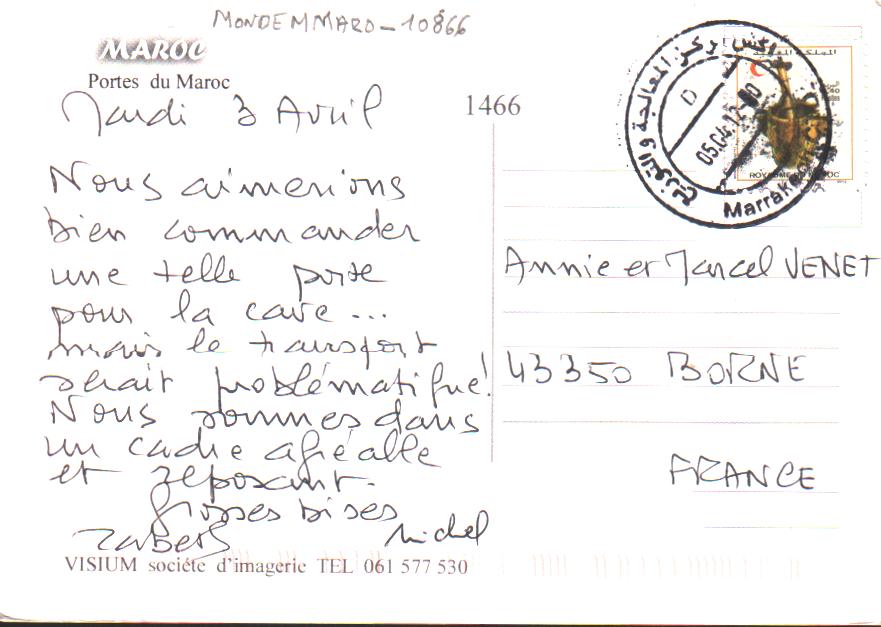 MONDEMMARO-10866
MAROC
Portes du Maroc
Mardi 3 Avril
1466
Nous aimerions
bien commander
une telle porte
pour la cave...
mais le transport
serait problématique!
Nous sommes dans
un cadre agréable
et reposant.
Grosses bises
Michel
VISIUM societe d'imagerie TEL 061 577 530
05.04.12
Marrake
ROYAUME DU MAROC
Annie et Marcel VENET
43350 BORNE
FRANCE